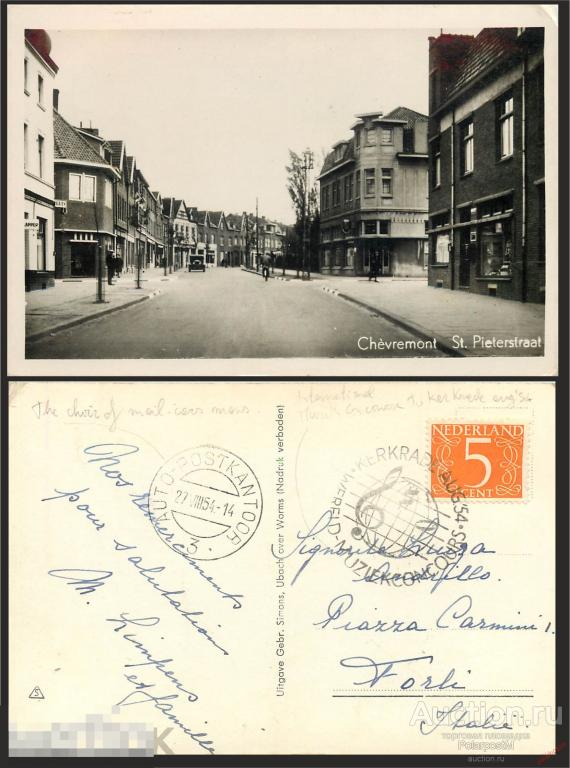 Chèvremont St. Pieterstraat
The choir of mail-cars mans.
International
Kerkrade aug '54
Nos remerciments
pour salutations
M. Limpens
et famille
AUTO-POSTKANTOOR
27 VIII 54.-14
3
Uitgave Gebr. Simons, Ubach over Worms (Nadruk verboden)
KERKRADE AUG. '54
WERELD-MUZIEKCONCOURS
NEDERLAND
5
CENT
Signorita Luiza
Piazza Carmini 1.
Forli
Italie.
Auction.ru
торговая площадка
PolarpostM
auction.ru